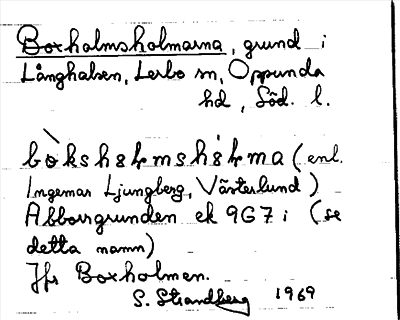 Boxholmsholmarna, grund i
Långhalsen, Lerbo sn, Oppunda
hd, Söd. l.
bòkshɞɫmshɞ́ɫma (enl.
Ingemar Ljungberg, Västerlund)
Abborrgrunden ek 9G7i (se
detta namn)
Jfr Boxholmen.
S. Strandberg 1969